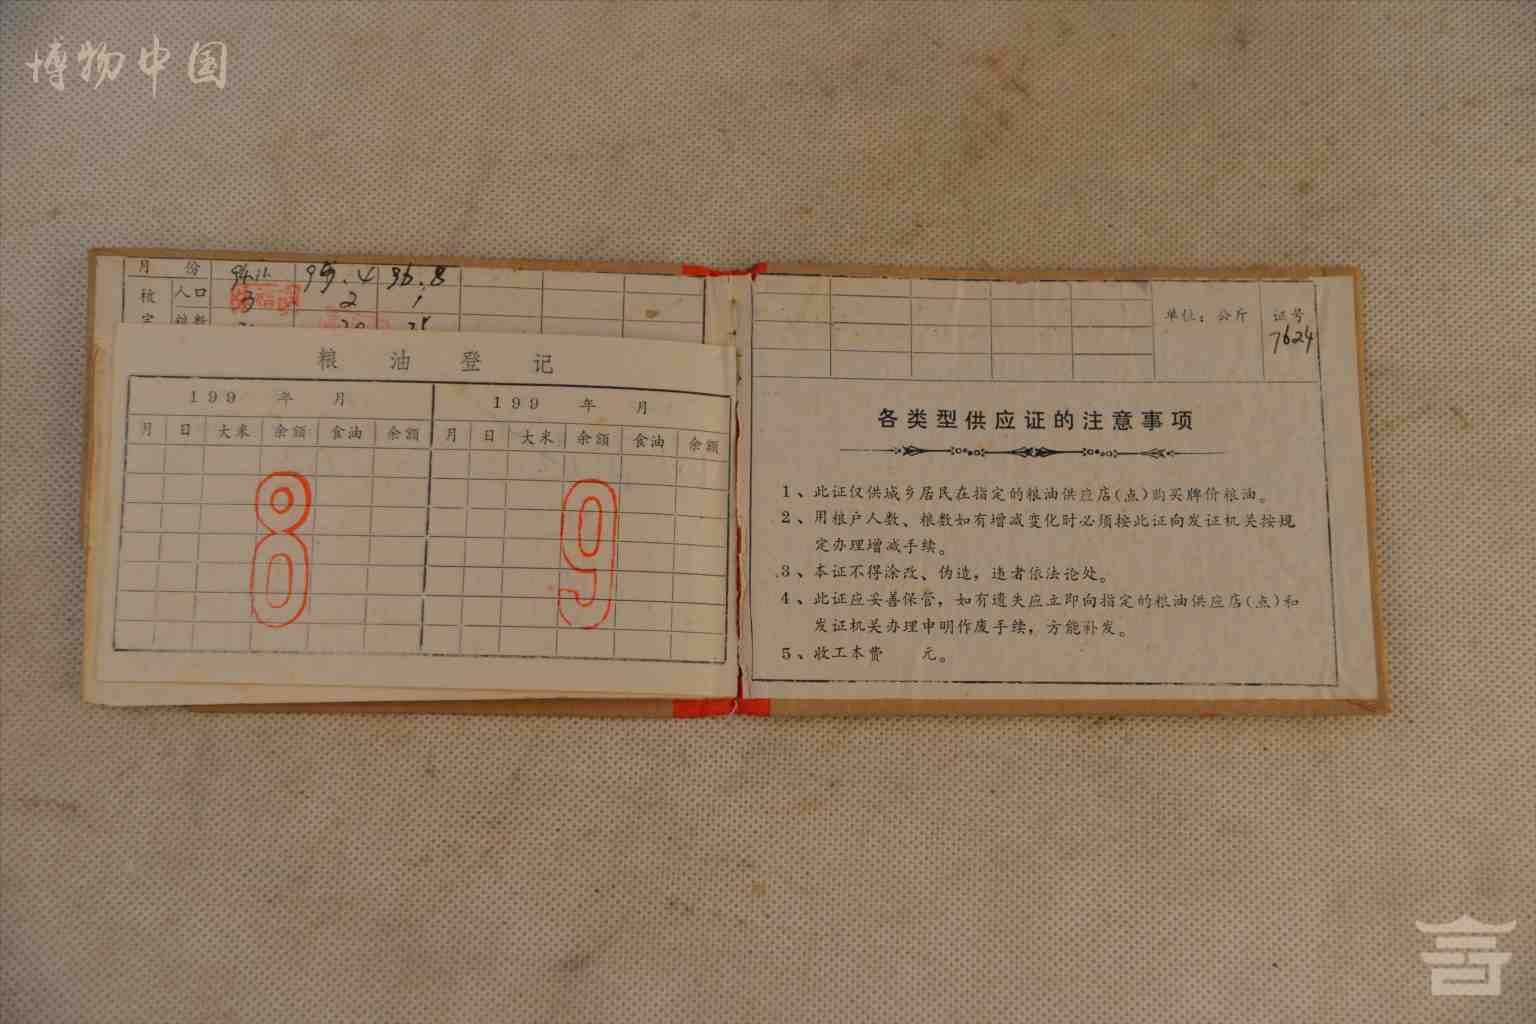 博物中国
月 份 94.11 95.4 96.8
核 人口 3 2 1
定 粮数 20 25
粮油登记
199 年 月 199 年 月
月 日 大米 余额 食油 余额 月 日 大米 余额 食油 余额
8 9
单位：公斤 证号
7624
各类型供应证的注意事项
1、此证仅供城乡居民在指定的粮油供应店(点)购买牌价粮油。
2、用粮户人数、粮数如有增减变化时必须按此证向发证机关按规
定办理增减手续。
3、本证不得涂改、伪造，违者依法论处。
4、此证应妥善保管，如有遗失应立即向指定的粮油供应店(点)和
发证机关办理申明作废手续，方能补发。
5、收工本费 元。